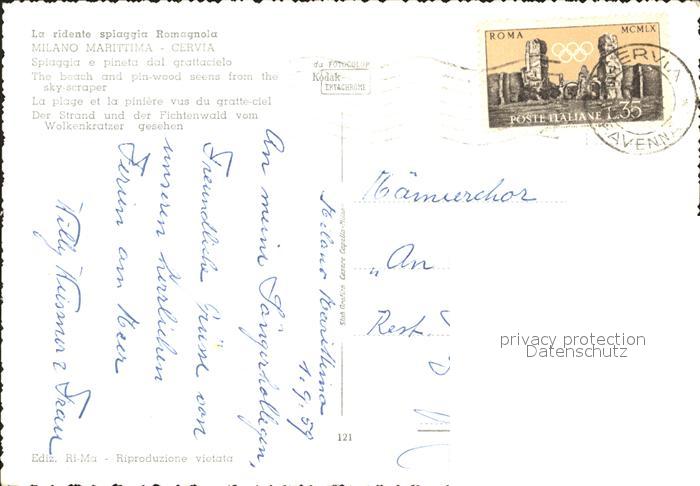 La ridente spiaggia Romagnola
MILANO MARITTIMA - CERVIA
Spiaggia e pineta dal grattacielo
The beach and pin-wood seens from the
sky-scraper
La plage et la pinière vus du gratte-ciel
Der Strand und der Fichtenwald vom
Wolkenkratzer gesehen
da FOTOCOLOR
Kodak
EKTACHROME
ROMA MCMLX
POSTE ITALIANE L.35
CERVIA
RAVENNA
Milano Marittima
1.9.59
An meine Sängerkollegen,
Freundliche Grüsse von
unseren herrlichen
Ferien am Meer
Willy & Frau
Männerchor
„An
Rest.
privacy protection
Datenschutz
121
Ediz. Ri-Ma - Riproduzione vietata